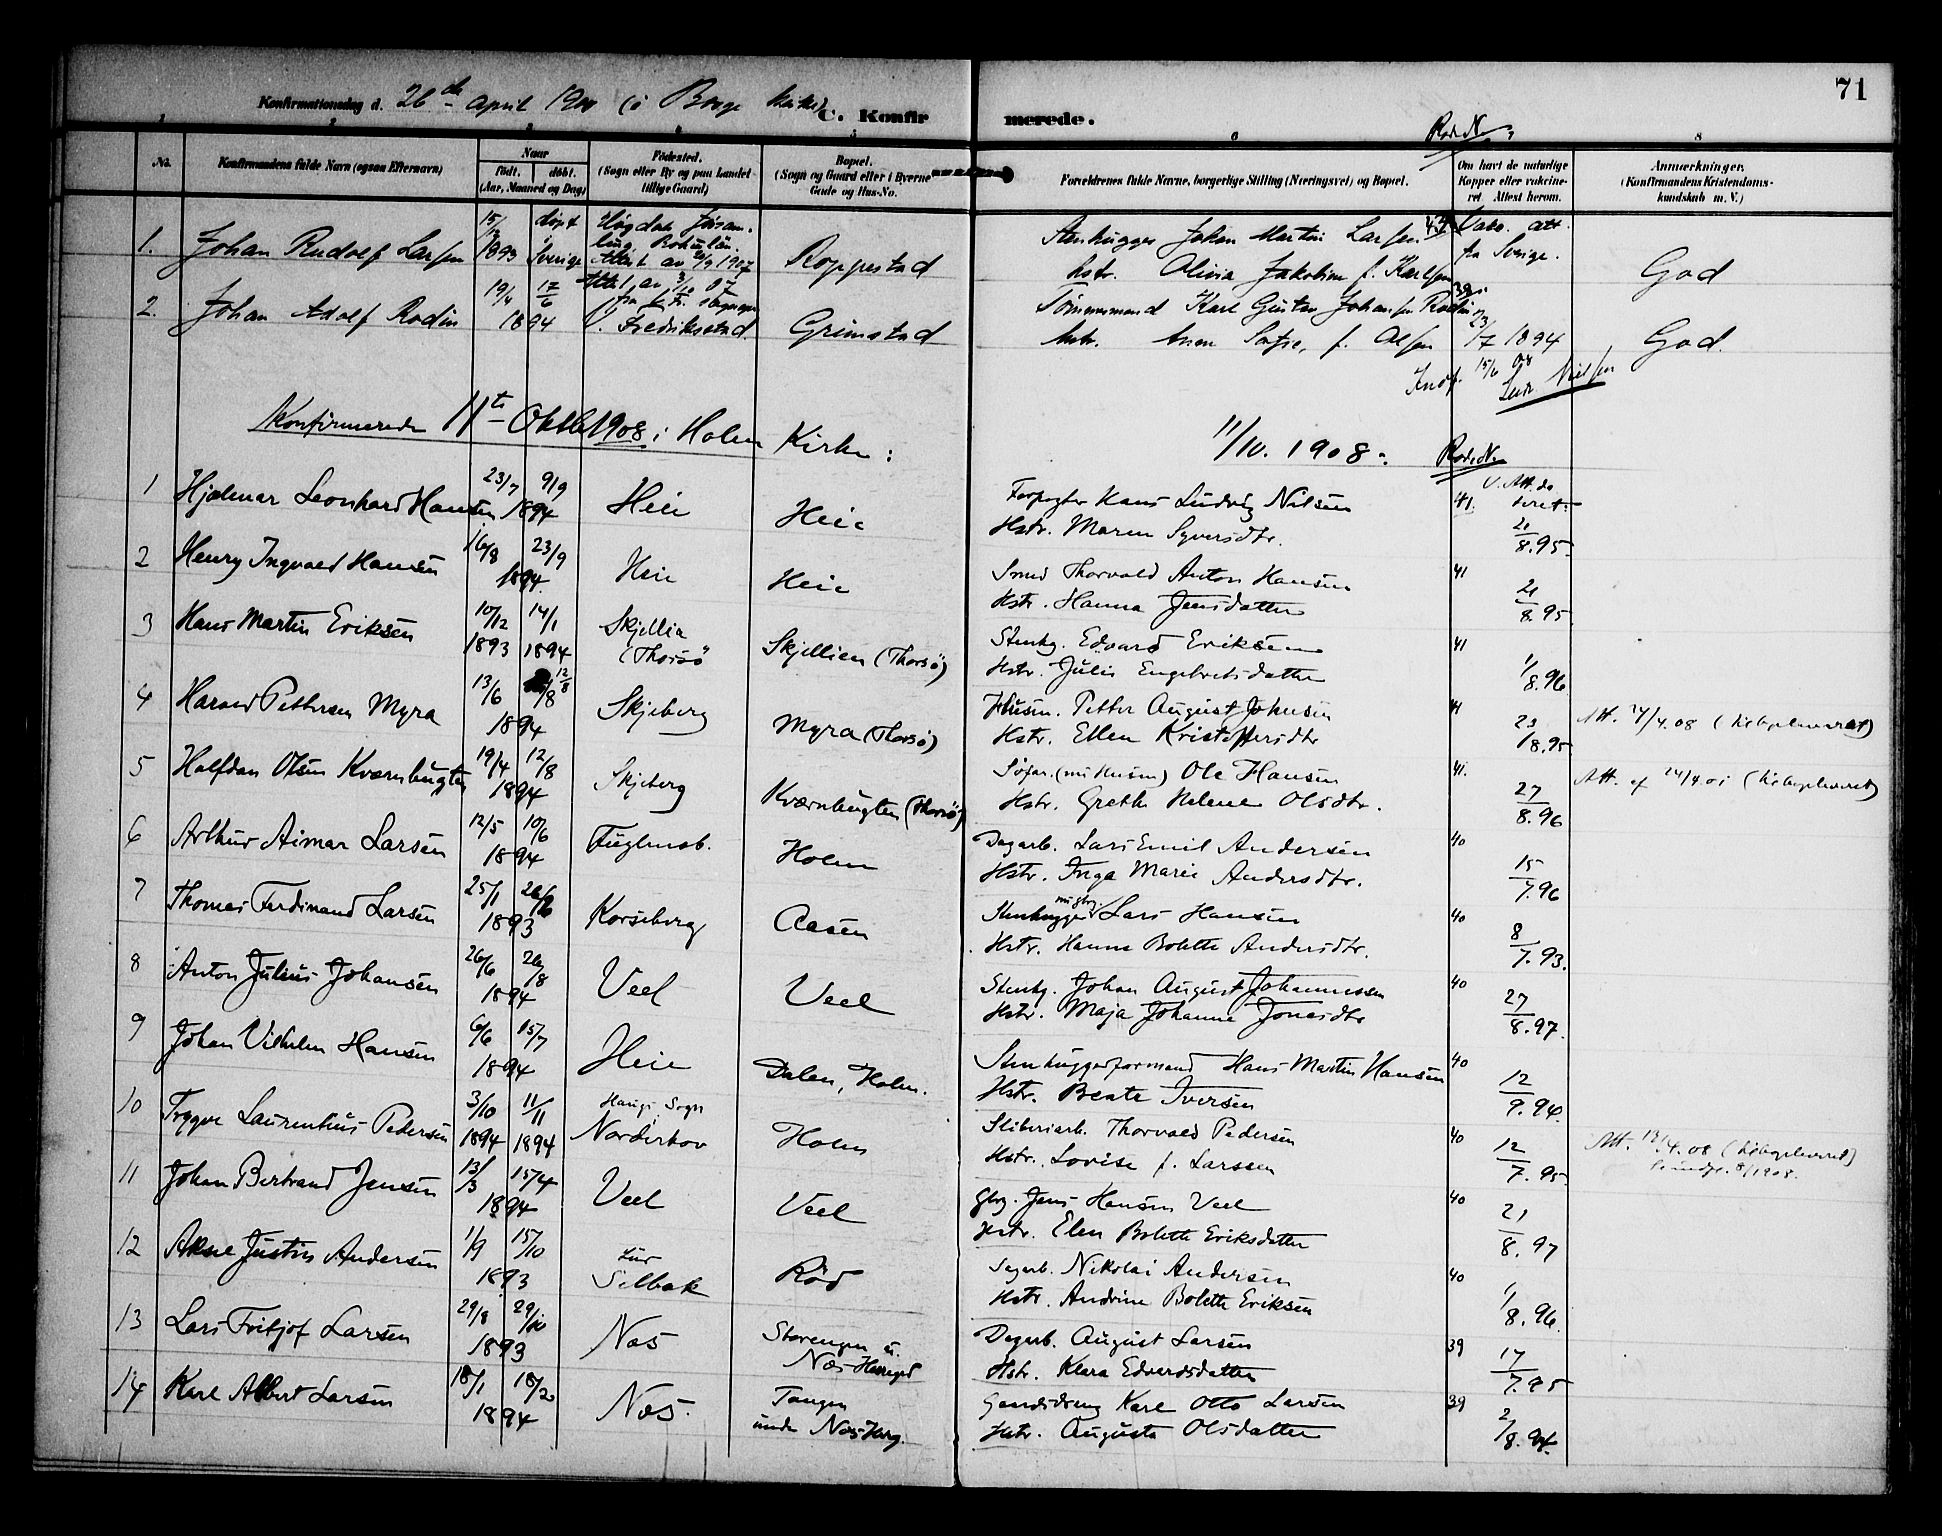 71
Konfirmationsdag d. 26de april 190 (i Borge kirke) C. Konfirmerede.
No. Konfirmandens fulde Navn (ogsaa Efternavn) Naar født. døbt. (Aar, Maaned og Dag) Fødested. (Sogn eller By og paa Landet tillige Gaard) Bopæl. (Sogn og Gaard eller i Byerne Gade og Hus-No. Forældrenes fulde Navne, borgerlige Stilling (Næringsvei) og Bopæl. Om havt de naturlige Kopper eller vaksineret Attest herom. Anmærkninger. (Konfirmandens Kristendomskundskab m. V.)
1. Johan Rudolf Larsen 15/12 1893 døpt i Sverige Bohuslän. Attest av 1907 Roppestad Stenhugger Johan Martin Larsen 43
Hstr. Olivia Jakobine f. Karlsen Vac. att. fra Sverige. God
2. Johan Adolf Rodin 19/4 17/6 1894 V. Fredriksstad. Grimstad Tømmermand Karl Gustav Johansen Rodin 39
Hstr. Anna Sofie, f. Olsen 23/7 1894 God.
Indf. 15/6 08
Konfirmerede 11te Oktbr 1908 i Holm Kirke: 11/10. 1908.
1 Hjalmar Leonhard Hansen 23/7 9/9 1894 Heie Heie Forpagter Hans Ludvig Nilsen 41.
Hstr. Maren Syversdtr. 8.95.
2 Henry Ingvald Hansen 16/8 23/9 1894. Heie Heie Smed Thorvald Anton Hansen 41
Hstr. Hanna Jensdatter 8.95
3 Hans Martin Eriksen 10/12 1893 14/1 1894 Skjellia (Thorsø Skjellien (Thorsø) Stenhg. Edvard Eriksen 41
Hstr. Julie Engebretsdatter 1/8.96
4 Harald Pettersen Myra 13/6 12/8 1894 Skjeberg Myra (Thorsø) Husm. Petter August Johnsen 41
Hstr. Ellen Kristoffersdtr 23/8.95 Att. 24/4.08
5 Halfdan Olsen Kværnbugten 19/4 12/8 1894 Skjeberg Kværnbugten (Thorsø) Søfar. (nu Husm) Ole Hansen 41.
Hstr. Grethe Helene Olsdtr. 27/8.96 Att. af 24/4.01
6 Arthur Aimar Larsen 12/5 10/6 1894 Fuglensb. Holm Dagarb. Lars Emil Andersen 40
Hstr. Inga Marie Andersdtr. 15/7.96
7 Thomas Ferdinand Larsen 25/1 1893 Korseberg Aasen Stenhugger nu gbrg. Lars Hansen 40
Hstr. Hanne Bolette Andersdtr. 8/7.93.
8 Anton Julius Johansen 26/6 26/8 1894 Veel Veel Stenhg. Johan August Johannessen 40
Hstr. Maja Johanne Jonasdtr 27/8.97.
9 Johan Vilhelm Hansen 6/6 15/7 1894 Heie Dalen, Holm. Stenhuggerformand Hans Martin Hansen 40
Hstr. Beate Iversen 12/9.94
10 Trygve Laurenthius Pedersen 3/10 1894 11/11 1894 Haugs Sogn Norderhov Holm Sliberiarb. Thorvald Pedersen 40
Hstr. Lovise f. Larssen 12/7.95 Att. 13/4.08
11 Johan Bertrand Jensen 13/3 15/4 1894 Veel Veel Gbrg. Jens Hansen Veel 40
Hstr. Elen Bolette Eriksdatter 21/8.97
12 Aksel Justin Andersen 1/9 15/10 1893 Selbak Rød Sagarb. Nikolai Andersen 40
Hstr. Andrine Bolette Eriksen 1/8.96
13 Lars Fritjof Larsen 29/8 29/10 1893 Næs Storengen u. Næs Herregd Dagarb. August Larsen 39
Hstr. Klara Edvardsdatter 17/7.95
14 Karl Albert Larsen 18/1 1894 Næs. Tangen under Næs Herg. Gaardsdreng Karl Otto Larsen 39
Hstr. Augusta Olsdatter 2/8.94.